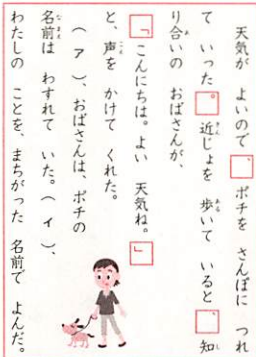 天気が よいので、ポチを さんぽに つれ
て いった。近じょを 歩いて いると、知
り合いの おばさんが、
「こんにちは。よい 天気ね。」
と、声を かけて くれた。
（ ア ）、おばさんは、ポチの
名前は わすれて いた。（ イ ）、
わたしの ことを、まちがった 名前で よんだ。